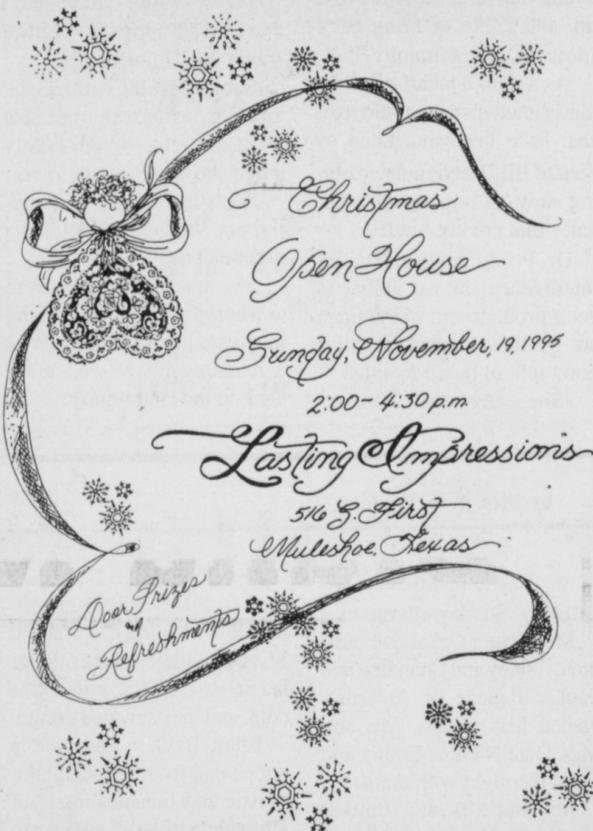 Christmas
Open House
Sunday, November, 19, 1995
2:00-4:30 p.m.
Lasting Impressions
516 S. First
Muleshoe, Texas
Door Prizes
of
Refreshments